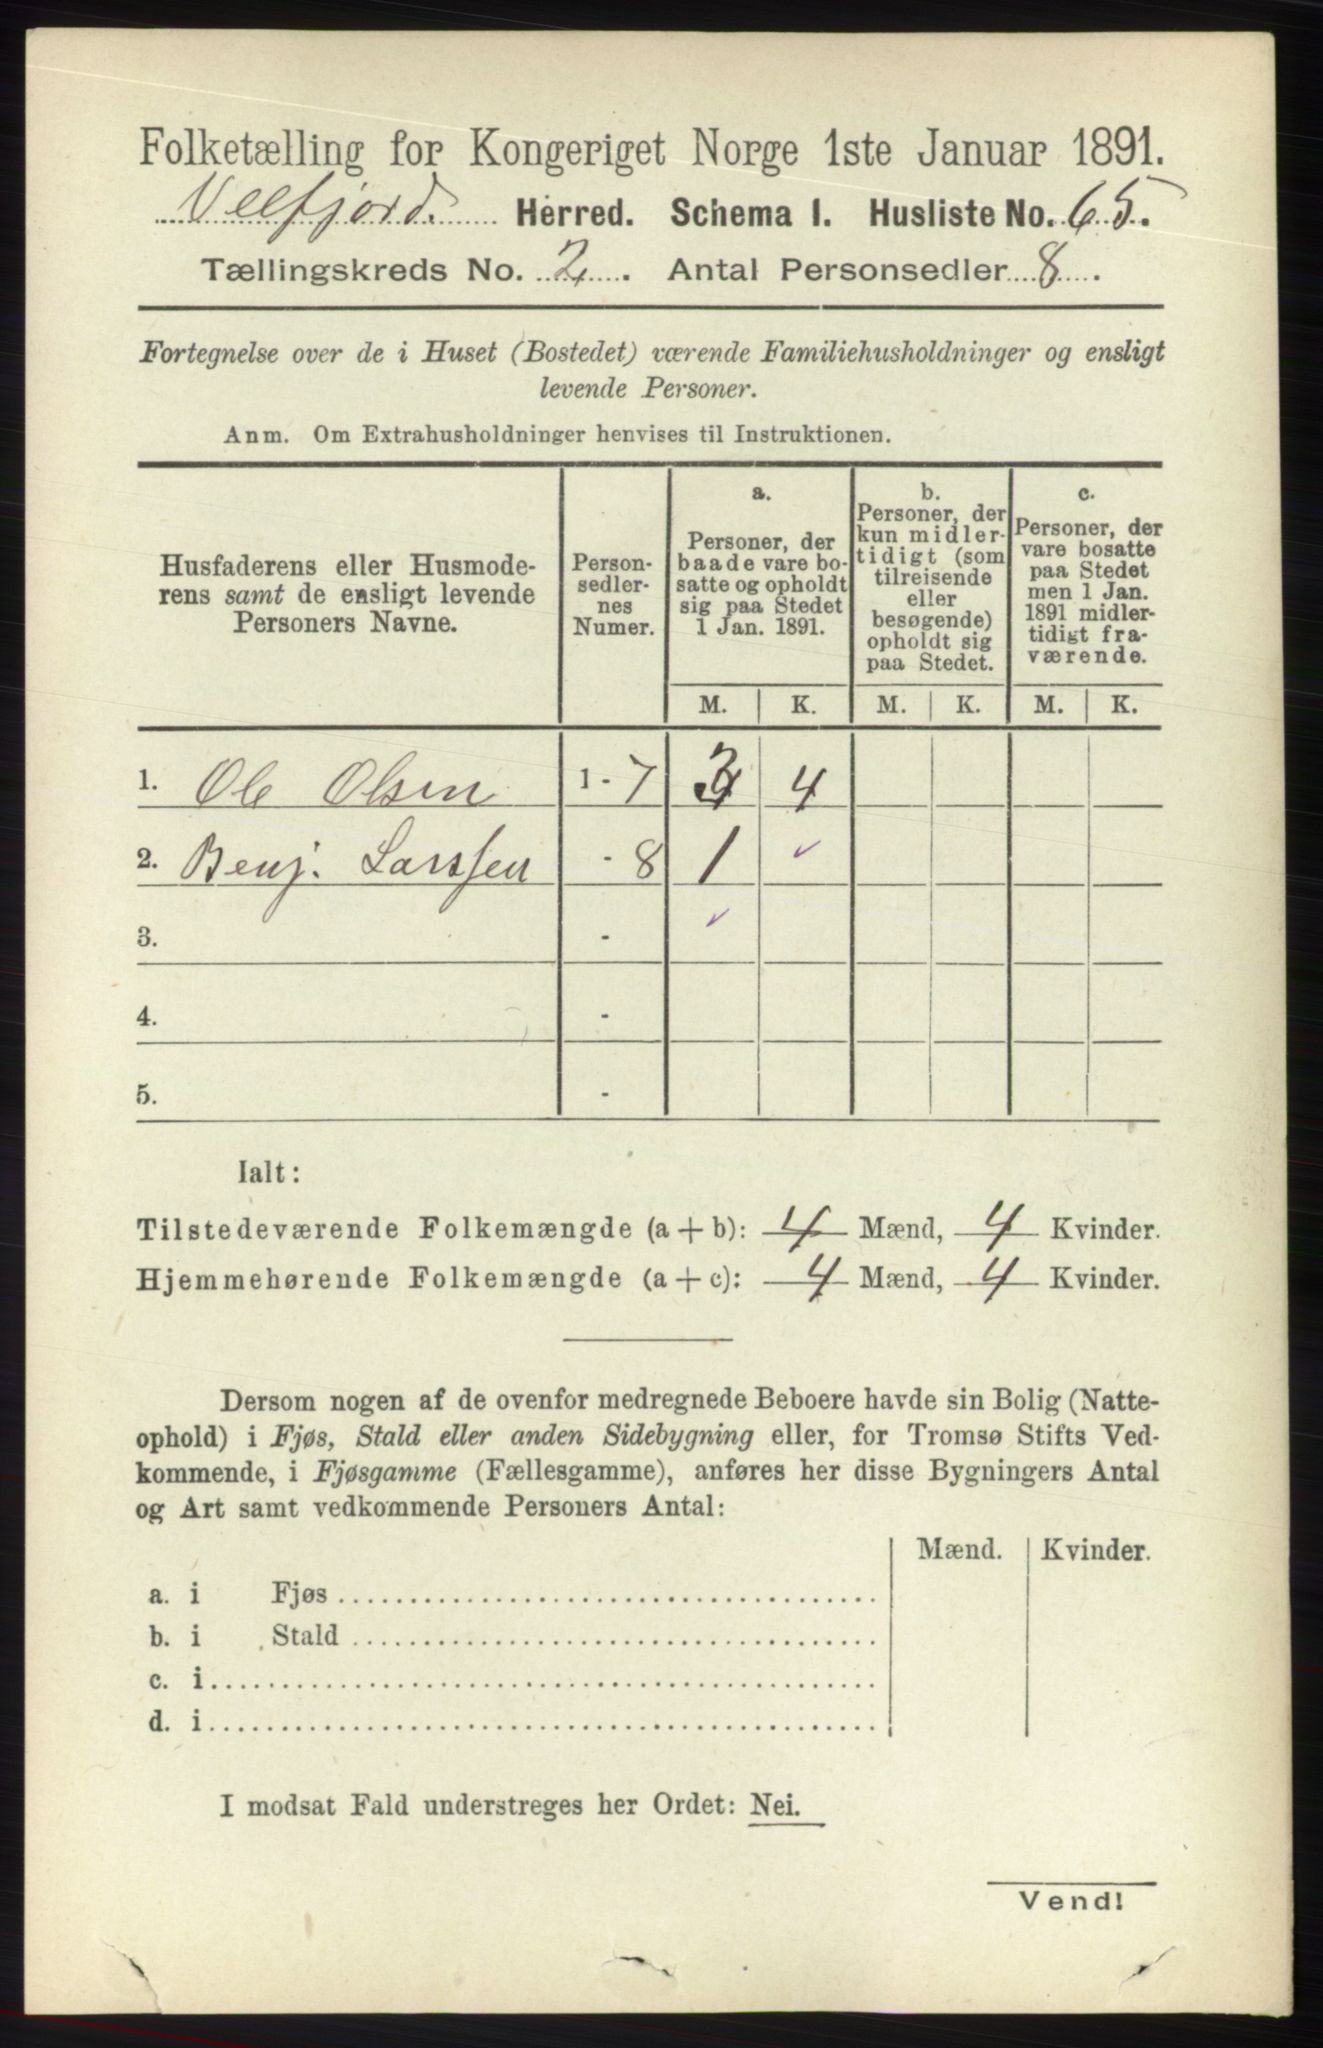 Folketælling for Kongeriget Norge 1ste Januar 1891.
Velfjord. Herred. Schema I. Husliste No. 65.
Tællingskreds No. 2. Antal Personsedler 8.
Fortegnelse over de i Huset (Bostedet) værende Familiehusholdninger og ensligt
levende Personer.
Anm. Om Extrahusholdninger henvises til Instruktionen.
Husfaderens eller Husmode-
rens samt de ensligt levende
Personers Navne.
Person-
sedler-
nes
Numer.
a.
Personer, der
baade vare bo-
satte og opholdt
sig paa Stedet
1 Jan. 1891.
b.
Personer, der
kun midler-
tidigt (som
tilreisende
eller
besøgende)
opholdt sig
paa Stedet.
c.
Personer, der
vare bosatte
paa Stedet
men 1 Jan.
1891 midler-
tidigt fra-
værende.
M. K. M. K. M. K.
1. Ole Olsen 1 - 7 3 4
2. Benj. Larssen - 8 1
3. -
4. -
5. -
Ialt:
Tilstedeværende Folkemængde (a + b): 4 Mænd, 4 Kvinder.
Hjemmehørende Folkemængde (a + c): 4 Mænd, 4 Kvinder.
Dersom nogen af de ovenfor medregnede Beboere havde sin Bolig (Natte-
ophold) i Fjøs, Stald eller anden Sidebygning eller, for Tromsø Stifts Ved-
kommende, i Fjøsgamme (Fællesgamme), anføres her disse Bygningers Antal
og Art samt vedkommende Personers Antal:
Mænd. Kvinder.
a. i Fjøs
b. i Stald
c. i
d. i
I modsat Fald understreges her Ordet: Nei.
Vend!